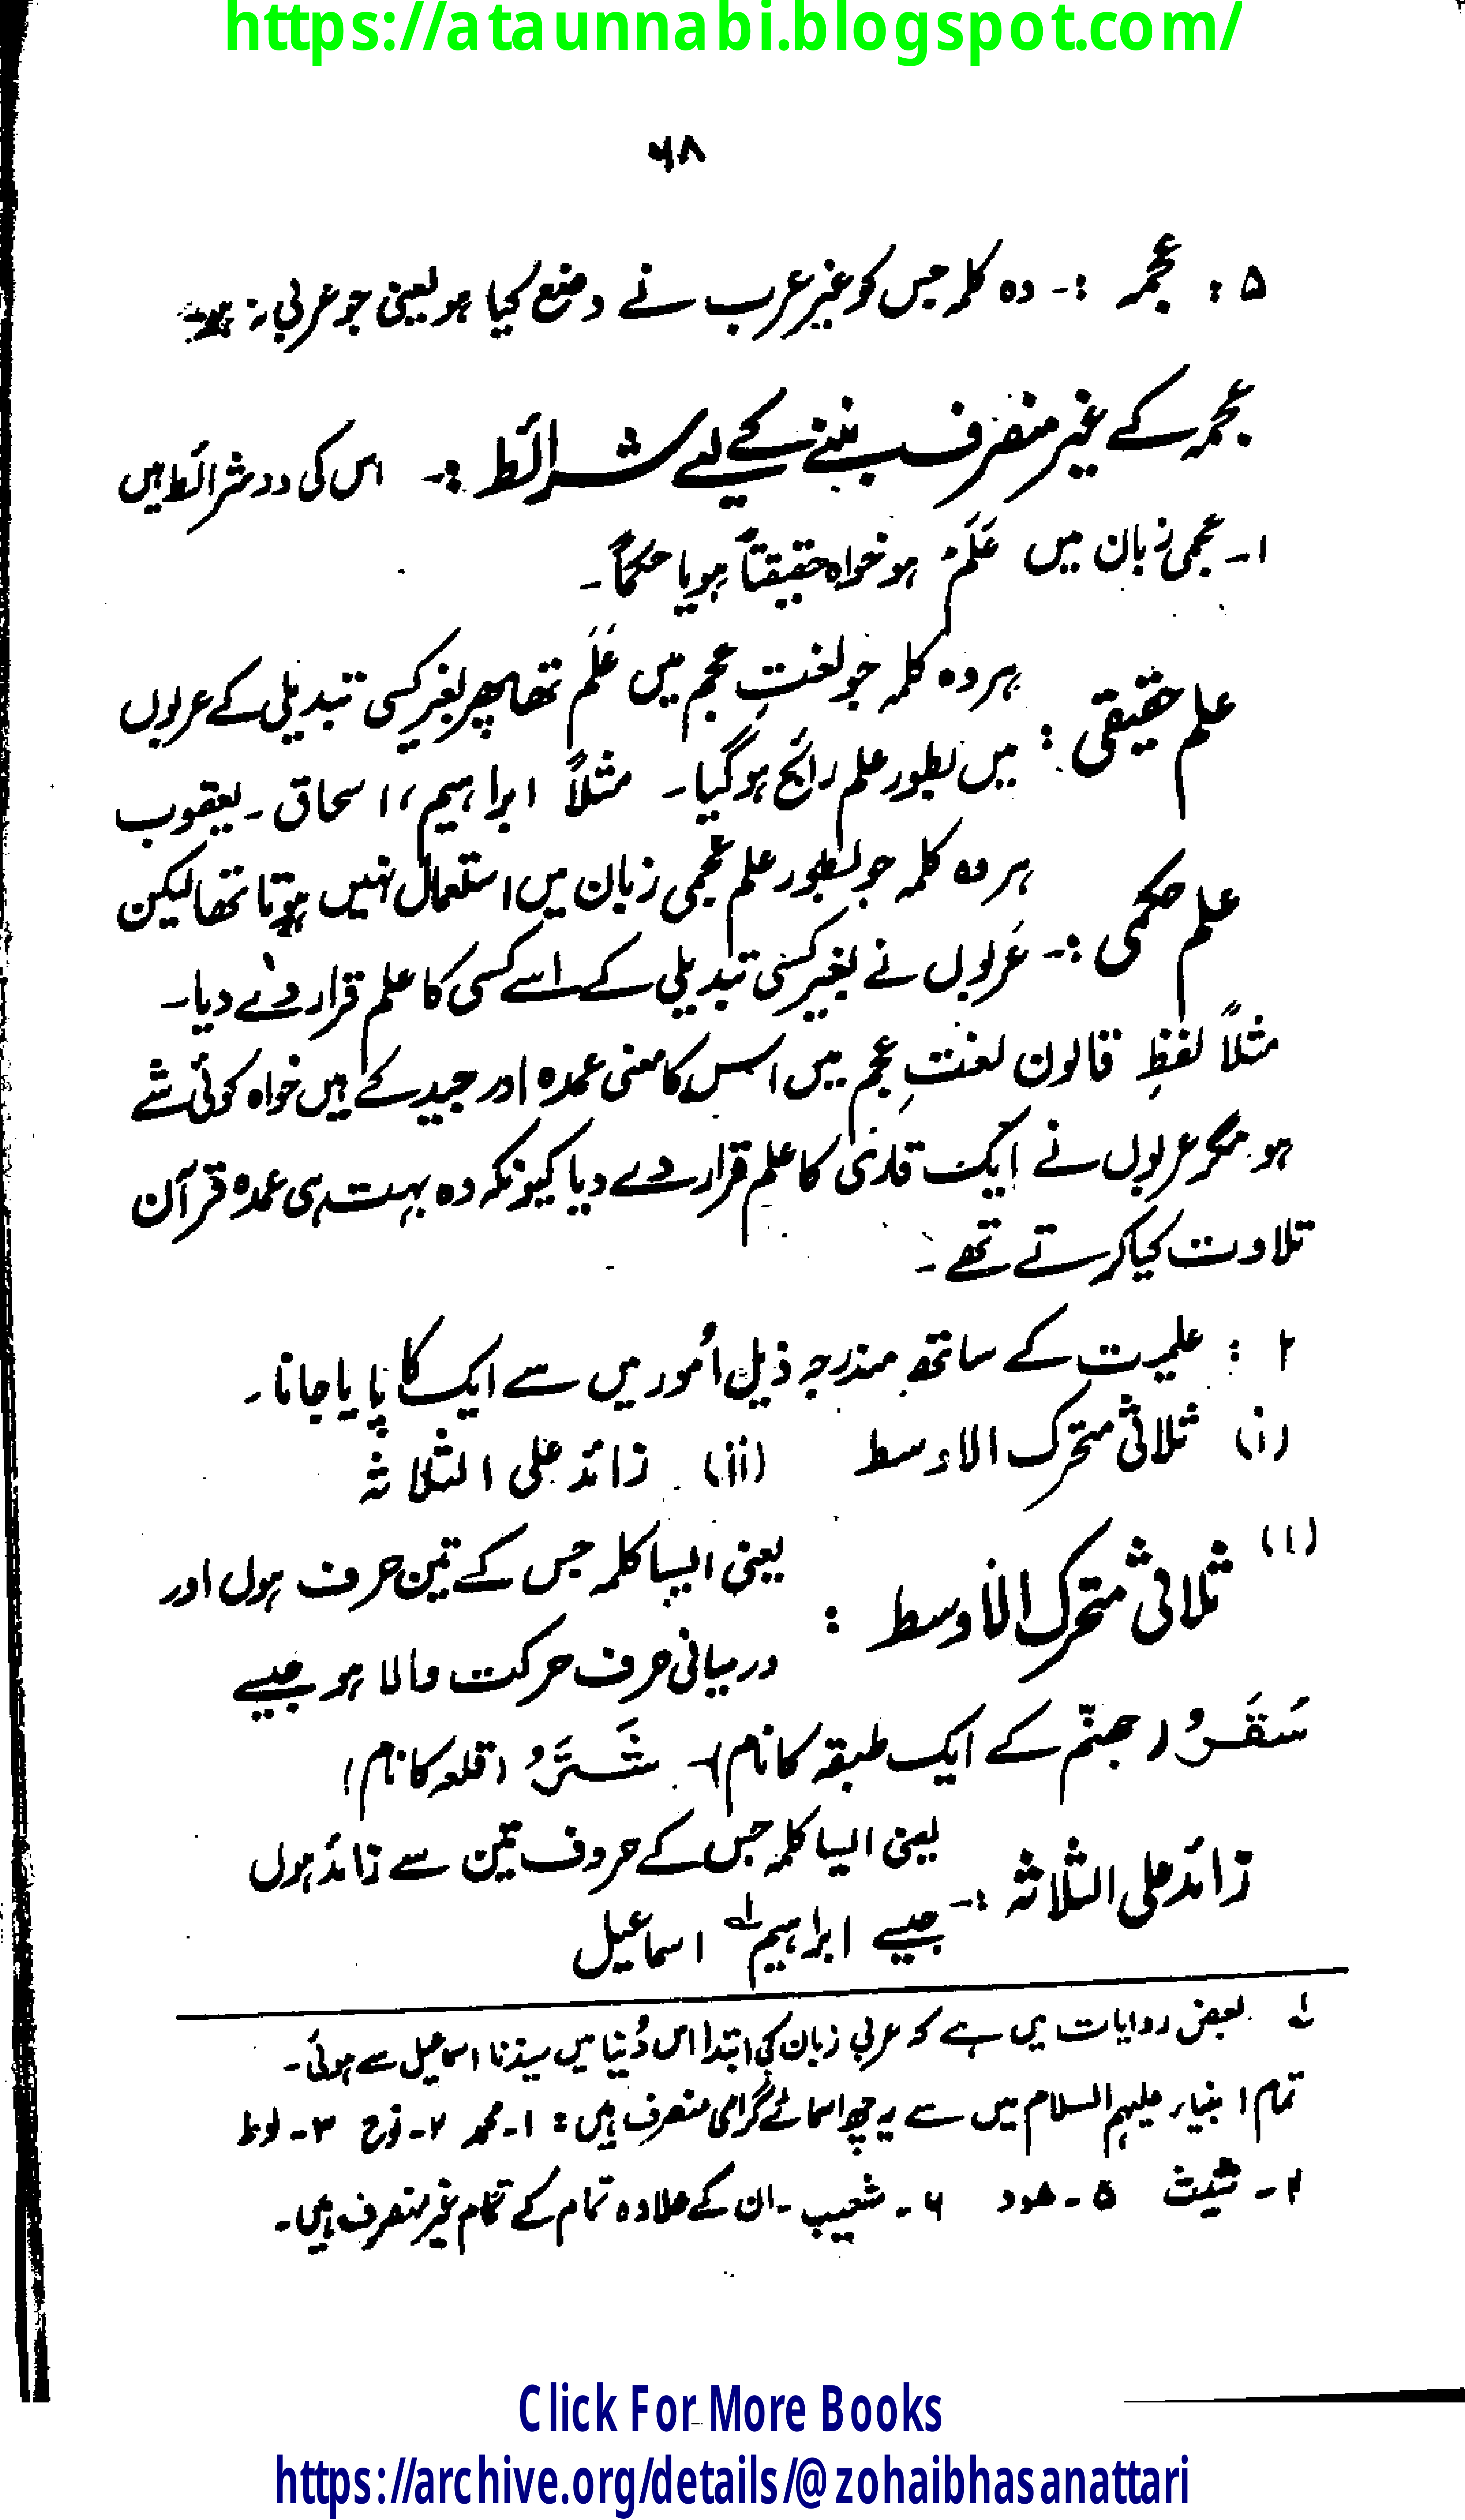 https://ataunnabi.blogspot.com/
۶۸
۵ : عجمہ :۔ وہ کلمہ جس کو غیر عرب نے وضع کیا ہو یعنی جو عربی نہ ہو۔
عجمہ کے غیر منصرف بننے کے لئے شرائط :۔ اس کی دو شرائط ہیں
۱۔ عجمی زبان میں عَلَم ہو خواہ حقیقتاً ہو یا حکماً۔
علم حقیقی : ہر وہ کلمہ جو لغتِ عجم میں عَلَم تھا پھر بغیر کسی تبدیلی کے عربوں
میں بطور علم رائج ہو گیا۔ مثلاً ابراہیم، اسحاق۔ یعقوب
علم حکمی :۔ ہر وہ کلمہ جو بطور علم عجمی زبان میں استعمال نہیں ہوتا تھا لیکن
عربوں نے بغیر کسی تبدیلی کے اسے کسی کا علم قرار دے دیا۔
مثلاً لفظِ قالون لغتِ عجم میں اس کا معنی عمدہ اور جید کے ہیں خواہ کوئی شے
ہو۔ مگر عربوں نے ایک قاری کا علم قرار دے دیا کیونکہ وہ بہت ہی عمدہ قرآن
تلاوت کیا کرتے تھے۔
۲ : علمیت کے ساتھ مندرجہ ذیل اُمور میں سے ایک کا پایا جانا۔
(i) ثلاثی متحرک الاوسط (ii) زائد علی الثلاثہ
(۱) ثلاثی متحرک الاوسط : یعنی ایسا کلمہ جس کے تین حرف ہوں اور
درمیانی حرف حرکت والا ہو جیسے
سَقَرُ (جہنّم کے ایک طبقہ کا نام)۔ شَتَرُ (قلعہ کا نام)
زائد علی الثلاثہ :۔ یعنی ایسا کلمہ جس کے حروف تین سے زائد ہوں
جیسے ابراہیم ۱ اسماعیل
۱ بعض روایات میں ہے کہ عربی زبان کی ابتدا اس دُنیا میں سیدنا اسماعیل سے ہوئی۔
تمام انبیاء علیہم السلام میں سے یہ چھ اسمائے گرامی منصرف ہیں : ۱۔ محمد ۲۔ نوح ۳۔ لوط
۴۔ شیث ۵۔ ھود ۶۔ شعیب۔ ان کے علاوہ تمام کے تمام غیر منصرف ہیں۔
Click For More Books
https://archive.org/details/@zohaibhasanattari